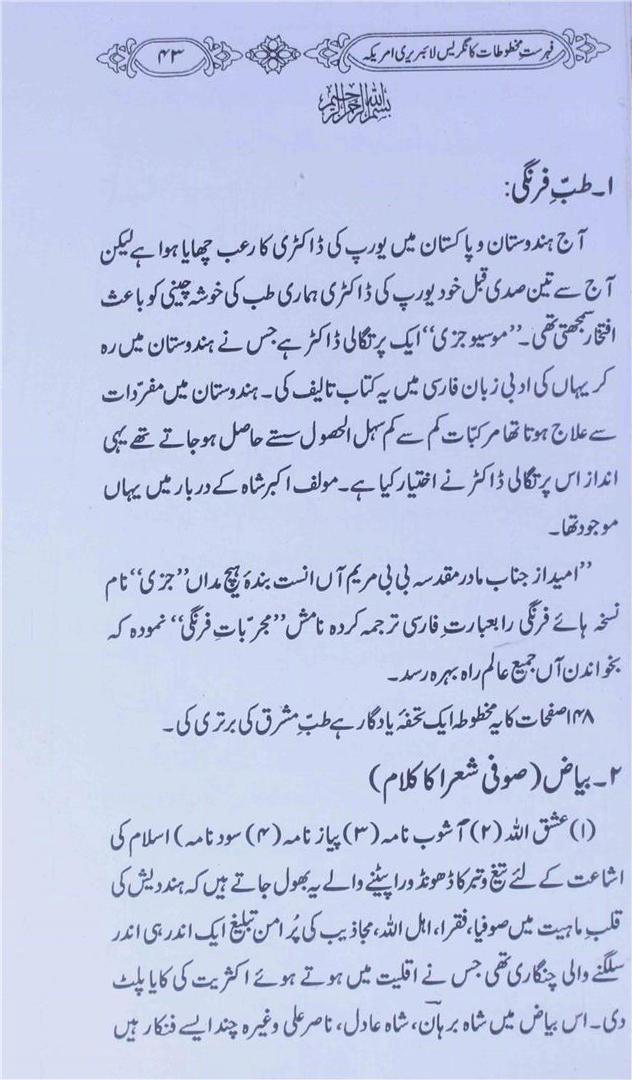 فہرستِ مخطوطات کانگریس لائبریری امریکہ
۴۳
بسم اللہ الرحمن الرحیم
۱۔ طبِّ فرنگی:
آج ہندوستان و پاکستان میں یورپ کی ڈاکٹری کا رعب چھایا ہوا ہے لیکن
آج سے تین صدی قبل خود یورپ کی ڈاکٹری ہماری طب کی خوشہ چینی کو باعث
افتخار سمجھتی تھی۔ ”موسیو جزی“ ایک پرتگالی ڈاکٹر ہے جس نے ہندوستان میں رہ
کر یہاں کی ادبی زبان فارسی میں یہ کتاب تالیف کی۔ ہندوستان میں مفرّدات
سے علاج ہوتا تھا مرکبّات کم سے کم سہل الحصول سستے حاصل ہو جاتے تھے یہی
انداز اس پرتگالی ڈاکٹر نے اختیار کیا ہے۔ مولف اکبر شاہ کے دربار میں یہاں
موجود تھا۔
”امید از جناب مادر مقدسہ بی بی مریم آں انست بندۂ ہیچ مداں ”جزی“ نام
نسخہ ہائے فرنگی را بعبارتِ فارسی ترجمہ کردہ نامش ”مجرّباتِ فرنگی“ نمودہ کہ
بخواندن آں جمیع عالم راہ بہرہ رسد۔
۱۴۸ صفحات کا یہ مخطوطہ ایک تحفۂ یادگار ہے طبِّ مشرق کی برتری کی۔
۲۔ بیاض (صوفی شعرا کا کلام)
(۱) عشق اللہ (۲) آشوب نامہ (۳) پیاز نامہ (۴) سود نامہ) اسلام کی
اشاعت کے لئے تیغ و تبر کا ڈھونڈورا پیٹنے والے یہ بھول جاتے ہیں کہ ہند دیش کی
قلبِ ماہیت میں صوفیا، فقرا، اہل اللہ، مجاذیب کی پُر امن تبلیغ ایک اندر ہی اندر
سلگنے والی چنگاری تھی جس نے اقلیت میں ہوتے ہوئے اکثریت کی کایا پلٹ
دی۔ اس بیاض میں شاہ برہان، شاہ عادل، ناصر علی وغیرہ چند ایسے فنکار ہیں